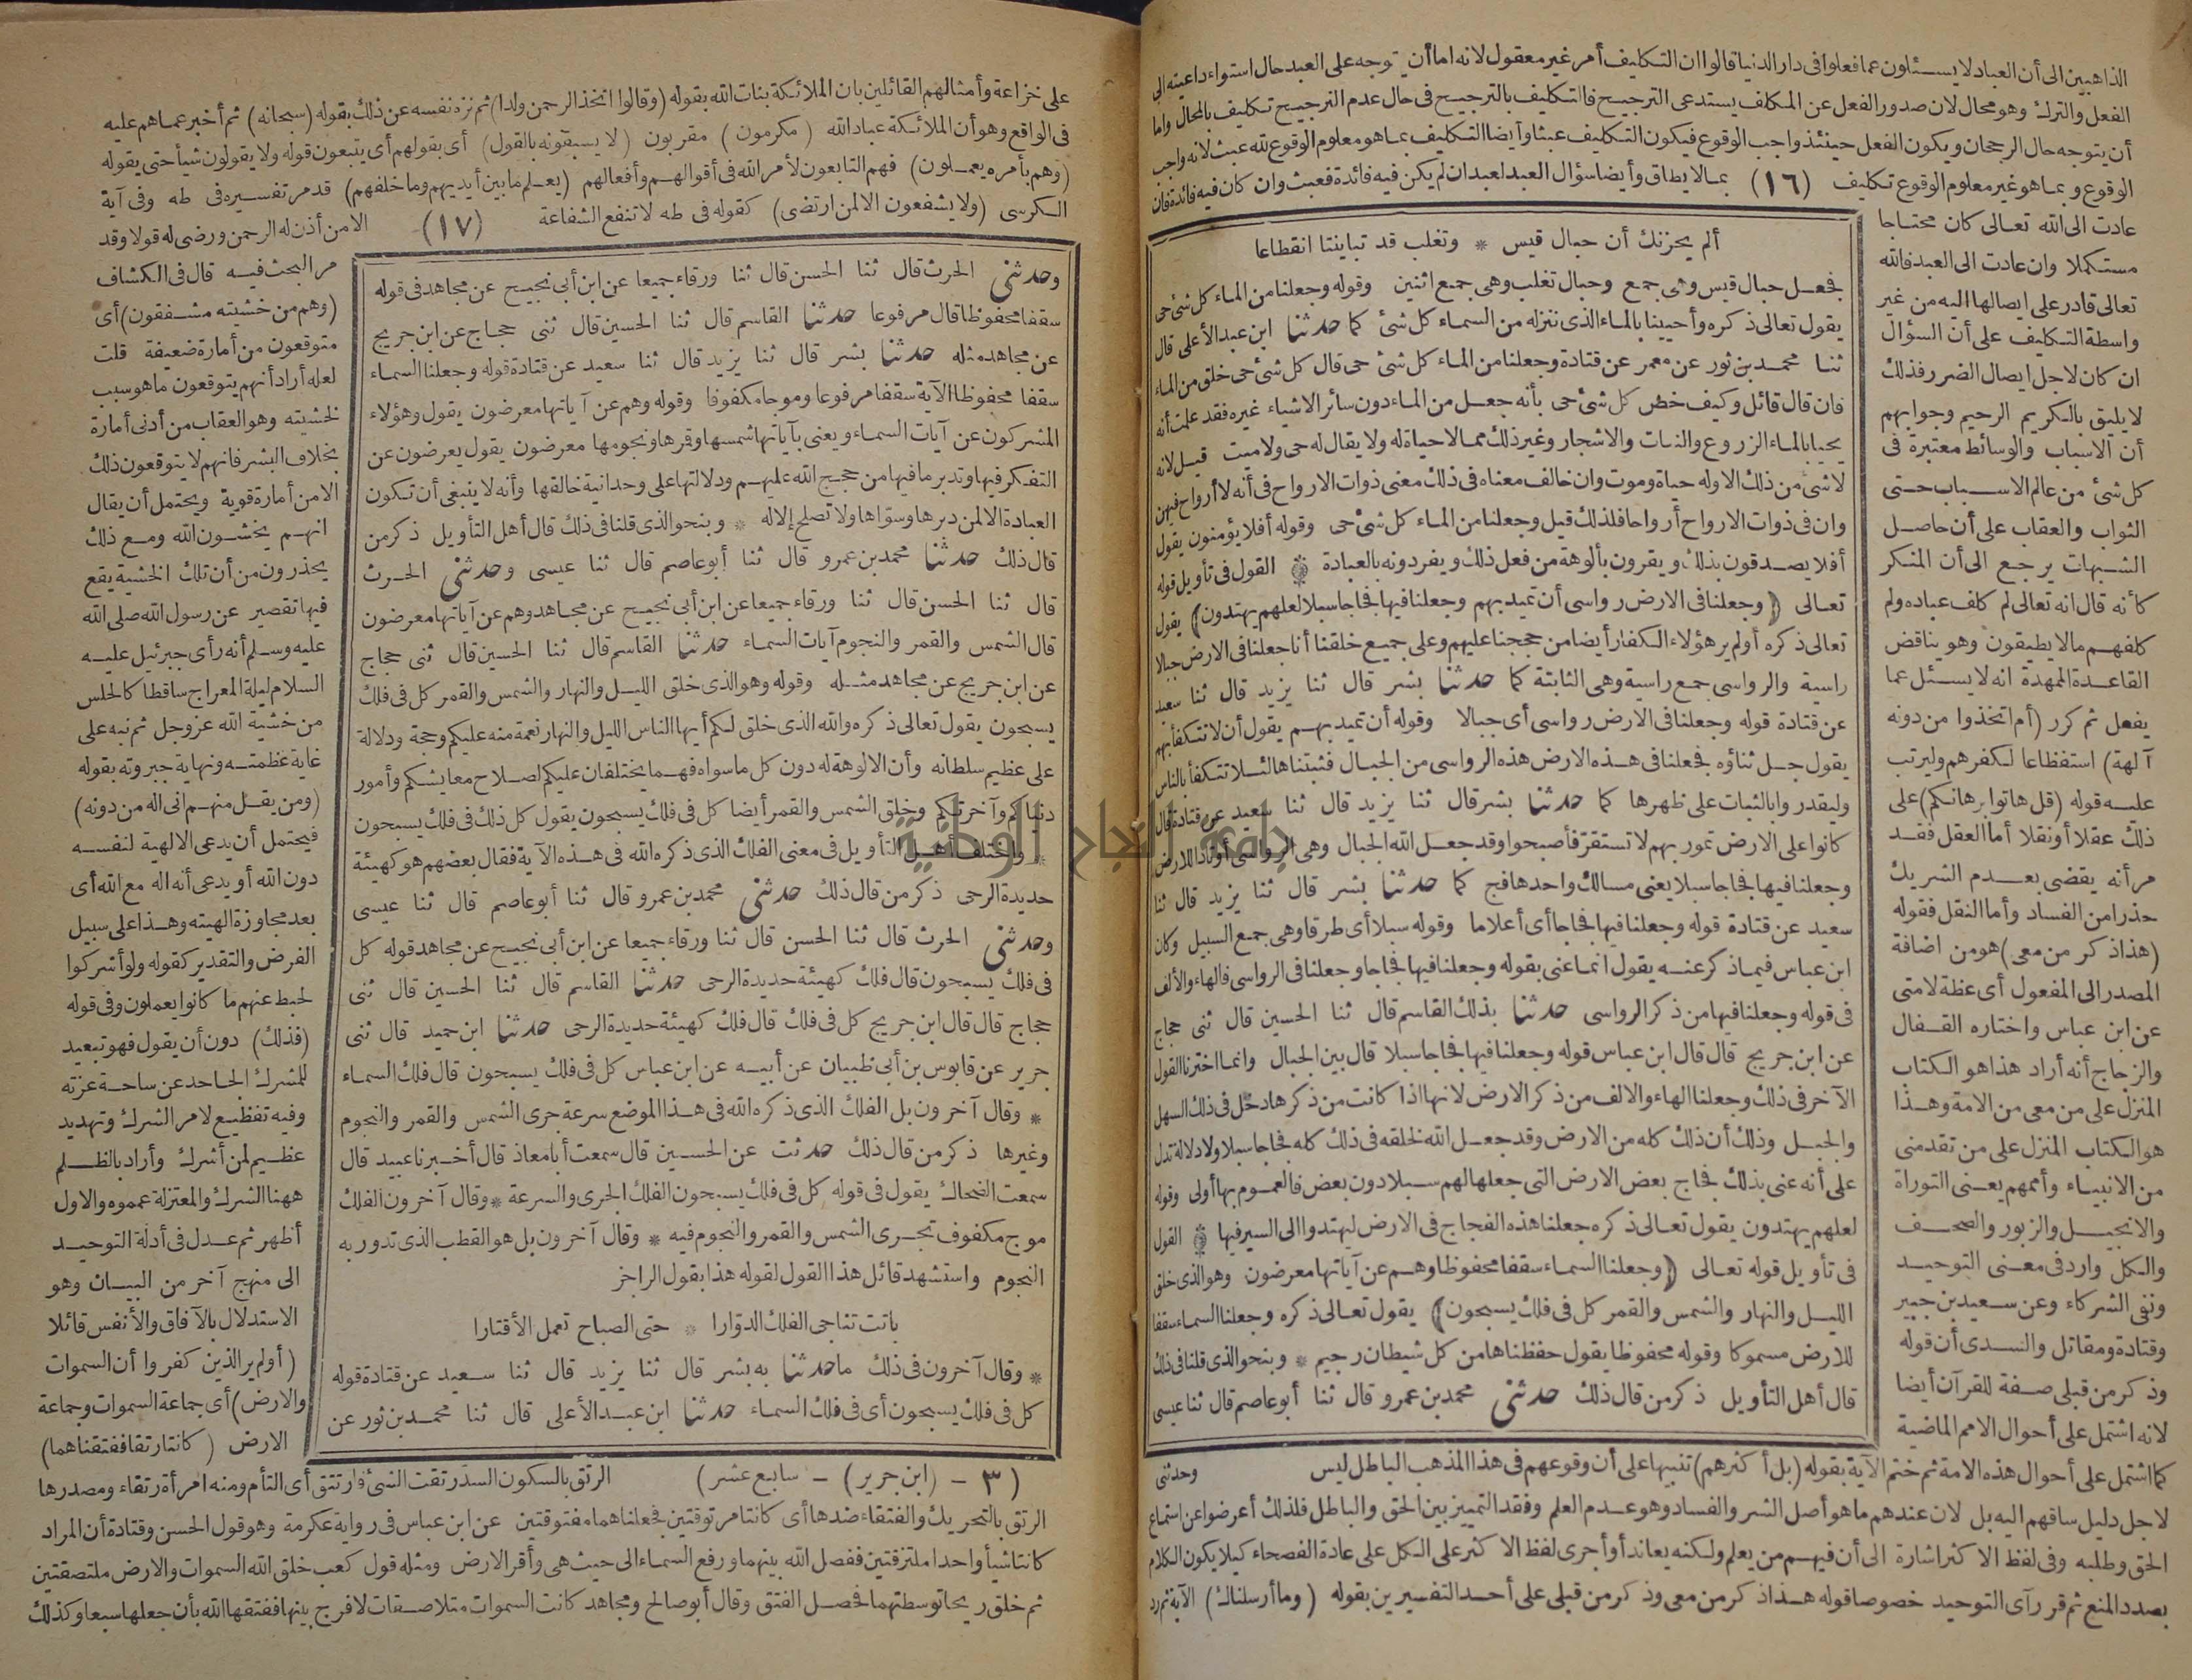 الذاهبين الى أن العباد لا يسئلون عما فعلوا فى دار الدنيا قالوا ان التكليف أمر غير معقول لانه اما أن يتوجه على العبد حال استواء داعيته الى
الفعل والترك وهو محال لان صدور الفعل عن المكلف يستدعى الترجيح فالتكليف بالترجيح فى حال عدم الترجيح تكليف بالمحال واما
أن يتوجه حال الرجحان ويكون الفعل حينئذ واجب الوقوع فيكون التكليف عبثا وأيضا التكليف بما هو معلوم الوقوع لله عبث لانه واجب
الوقوع وبما هو غير معلوم الوقوع تكليف (١٦) بما لا يطاق وأيضا سؤال العبد لعبد ان لم يكن فيه فائدة فعبث وان كان فيه فائدة فان
عادت الى الله تعالى كان محتاجا
مستكملا وان عادت الى العبد فالله
تعالى قادر على ايصالها اليه من غير
واسطة التكليف على أن السؤال
ان كان لاجل ايصال الضرر فذلك
لا يليق بالكريم الرحيم وجوابهم
أن الاسباب والوسائط معتبرة فى
كل شئ من عالم الاسباب حتى
الثواب والعقاب على أن حاصل
الشبهات يرجع الى أن المنكر
كأنه قال انه تعالى لم كلف عباده ولم
كلفهم مالا يطيقون وهو يناقض
القاعدة الممهدة انه لا يسئل عما
يفعل ثم كرر (أم اتخذوا من دونه
آلهة) استفظاعا لكفرهم وليرتب
عليه قوله (قل هاتوا برهانكم) على
ذلك عقلا أو نقلا أما العقل فقد
مر أنه يقضى بعدم الشريك
حذرا من الفساد وأما النقل فقوله
(هذا ذكر من معى) هو من اضافة
المصدر الى المفعول أى عظة لامتى
عن ابن عباس واختاره القفال
والزجاج أنه أراد هذا هو الكتاب
المنزل على من معى من الامة وهذا
هو الكتاب المنزل على من تقدمنى
من الانبياء وأممهم يعنى التوراة
والانجيل والزبور والصحف
والكل وارد فى معنى التوحيد
ونفى الشركاء وعن سعيد بن جبير
وقتادة ومقاتل والسدى أن قوله
وذكر من قبلى صفة للقرآن أيضا
لانه اشتمل على أحوال الامم الماضية
ألم يحزنك أن حبال قيس * وتغلب قد تباينتا انقطاعا
فجعل حبال قيس وهى جمع وحبال تغلب وهى جمع اثنين وقوله وجعلنا من الماء كل شئ حى
يقول تعالى ذكره وأحيينا بالماء الذى ننزله من السماء كل شئ كما حدثنا ابن عبد الأعلى قال
ثنا محمد بن ثور عن معمر عن قتادة وجعلنا من الماء كل شئ حى قال كل شئ حى خلق من الماء
فان قال قائل وكيف خص كل شئ حى بأنه جعل من الماء دون سائر الاشياء غيره فقد علمت أنه
يحيا بالماء الزروع والنبات والاشجار وغير ذلك مما لا حياة له ولا يقال له حى ولا ميت قيل لانه
لا شئ من ذلك الا وله حياة وموت وان خالف معناه فى ذلك معنى ذوات الارواح فى أنه لا أرواح فيهن
وان فى ذوات الارواح أرواحا فلذلك قيل وجعلنا من الماء كل شئ حى وقوله أفلا يؤمنون يقول
أفلا يصدقون بذلك ويقرون بألوهة من فعل ذلك ويفردونه بالعبادة * القول فى تأويل قوله
تعالى (وجعلنا فى الارض رواسى أن تميد بهم وجعلنا فيها فجاجا سبلا لعلهم يهتدون) يقول
تعالى ذكره أولم ير هؤلاء الكفار أيضا من حججنا عليهم وعلى جميع خلقنا أنا جعلنا فى الارض جبالا
راسية والرواسى جمع راسية وهى الثابتة كما حدثنا بشر قال ثنا يزيد قال ثنا سعيد
عن قتادة قوله وجعلنا فى الارض رواسى أى جبالا وقوله أن تميد بهم يقول أن لا تتكفأ بهم
يقول جل ثناؤه فجعلنا فى هذه الارض هذه الرواسى من الجبال فثبتناها لئلا تتكفأ بالناس
وليقدروا بالثبات على ظهرها كما حدثنا بشر قال ثنا يزيد قال ثنا سعيد عن قتادة قال
كانوا على الارض تمور بهم لا تستقر فأصبحوا وقد جعل الله الجبال وهى الرواسى أوتادا للارض
وجعلنا فيها فجاجا سبلا يعنى مسالك واحدها فج كما حدثنا بشر قال ثنا يزيد قال ثنا
سعيد عن قتادة قوله وجعلنا فيها فجاجا أى أعلاما وقوله سبلا أى طرقا وهى جمع السبيل وكان
ابن عباس فيما ذكر عنه يقول انما عنى بقوله وجعلنا فيها فجاجا وجعلنا فى الرواسى فالهاء والألف
فى قوله وجعلنا فيها من ذكر الرواسى حدثنا بذلك القاسم قال ثنا الحسين قال ثنى حجاج
عن ابن جريج قال قال ابن عباس قوله وجعلنا فيها فجاجا سبلا قال بين الجبال وانما اخترنا القول
الآخر فى ذلك وجعلنا الهاء والالف من ذكر الارض لانها اذا كانت من ذكرها دخل فى ذلك السهل
والجبل وذلك أن ذلك كله من الارض وقد جعل الله لخلقه فى ذلك كله فجاجا سبلا ولا دلالة تدل
على أنه عنى بذلك فجاج بعض الارض التى جعلها لهم سبلا دون بعض فالعموم بها أولى وقوله
لعلهم يهتدون يقول تعالى ذكره جعلنا هذه الفجاج فى الارض ليهتدوا الى السير فيها * القول
فى تأويل قوله تعالى (وجعلنا السماء سقفا محفوظا وهم عن آياتها معرضون وهو الذى خلق
الليل والنهار والشمس والقمر كل فى فلك يسبحون) يقول تعالى ذكره وجعلنا السماء سقفا
للارض مسموكا وقوله محفوظا يقول حفظناها من كل شيطان رجيم * وبنحو الذى قلنا فى ذلك
قال أهل التأويل ذكر من قال ذلك حدثنى محمد بن عمرو قال ثنا أبو عاصم قال ثنا عيسى
وحدثنى
كما اشتمل على أحوال هذه الامة ثم ختم الآية بقوله (بل أكثرهم) تنبيها على أن وقوعهم فى هذا المذهب الباطل ليس
لاجل دليل ساقهم اليه بل لان عندهم ما هو أصل الشر والفساد وهو عدم العلم وفقد التمييز بين الحق والباطل فلذلك أعرضوا عن استماع
الحق وطلبه وفى لفظ الاكثر اشارة الى أن فيهم من يعلم ولكنه يعاند أو أجرى لفظ الاكثر على الكل على عادة الفصحاء كيلا يكون الكلام
بصدد المنع ثم قرر آى التوحيد خصوصا قوله هذا ذكر من معى وذكر من قبلى على أحد التفسيرين بقوله (وما أرسلناك) الآية ثم رد
على خزاعة وأمثالهم القائلين بان الملائكة بنات الله بقوله (وقالوا اتخذ الرحمن ولدا) ثم نزه نفسه عن ذلك بقوله (سبحانه) ثم أخبر عما هم عليه
فى الواقع وهو أن الملائكة عباد الله (مكرمون) مقربون (لا يسبقونه بالقول) أى بقولهم أى يتبعون قوله ولا يقولون شيأ حتى يقوله
(وهم بأمره يعملون) فهم التابعون لأمر الله فى أقوالهم وأفعالهم (يعلم ما بين أيديهم وما خلفهم) قد مر تفسيره فى طه وفى آية
الكرسى (ولا يشفعون الا لمن ارتضى) كقوله فى طه لا تنفع الشفاعة (١٧) الا من أذن له الرحمن ورضى له قولا وقد
مر البحث فيه قال فى الكشاف
(وهم من خشيته مشفقون) أى
متوقعون من أمارة ضعيفة قلت
لعله أراد أنهم يتوقعون ما هو سبب
لخشيته وهو العقاب من أدنى أمارة
بخلاف البشر فانهم لا يتوقعون ذلك
الا من أمارة قوية ويحتمل أن يقال
انهم يخشون الله ومع ذلك
يحذرون من أن تلك الخشية يقع
فيها تقصير عن رسول الله صلى الله
عليه وسلم أنه رأى جبرئيل عليه
السلام ليلة المعراج ساقطا كالحلس
من خشية الله عز وجل ثم نبه على
غاية عظمته ونهاية جبروته بقوله
(ومن يقل منهم انى اله من دونه)
فيحتمل أن يدعى الالهية لنفسه
دون الله أو يدعى أنه اله مع الله أى
بعد مجاوزة الهيته وهذا على سبيل
الفرض والتقدير كقوله ولو أشركوا
لحبط عنهم ما كانوا يعملون وفى قوله
(فذلك) دون أن يقول فهو تبعيد
للمشرك الجاحد عن ساحة عزته
وفيه تفظيع لامر الشرك وتهديد
عظيم لمن أشرك وأراد بالظلم
ههنا الشرك والمعتزلة عمموه والاول
أظهر ثم عدل فى أدلة التوحيد
الى منهج آخر من البيان وهو
الاستدلال بالآفاق والأنفس قائلا
(أولم ير الذين كفروا أن السموات
والارض) أى جماعة السموات وجماعة
الارض (كانتا رتقا ففتقناهما)
وحدثنى الحرث قال ثنا الحسن قال ثنا ورقاء جميعا عن ابن أبى نجيح عن مجاهد فى قوله
سقفا محفوظا قال مرفوعا حدثنا القاسم قال ثنا الحسين قال ثنى حجاج عن ابن جريج
عن مجاهد مثله حدثنا بشر قال ثنا يزيد قال ثنا سعيد عن قتادة قوله وجعلنا السماء
سقفا محفوظا الآية سقفا مرفوعا وموجا مكفوفا وقوله وهم عن آياتها معرضون يقول وهؤلاء
المشركون عن آيات السماء ويعنى بآياتها شمسها وقمرها ونجومها معرضون يقول يعرضون عن
التفكر فيها وتدبر ما فيها من حجج الله عليهم ودلالتها على وحدانية خالقها وأنه لا ينبغى أن تكون
العبادة الا لمن دبرها وسواها ولا تصلح إلا له * وبنحو الذى قلنا فى ذلك قال أهل التأويل ذكر من
قال ذلك حدثنا محمد بن عمرو قال ثنا أبو عاصم قال ثنا عيسى وحدثنى الحرث
قال ثنا الحسن قال ثنا ورقاء جميعا عن ابن أبى نجيح عن مجاهد وهم عن آياتها معرضون
قال الشمس والقمر والنجوم آيات السماء حدثنا القاسم قال ثنا الحسين قال ثنى حجاج
عن ابن جريج عن مجاهد مثله وقوله وهو الذى خلق الليل والنهار والشمس والقمر كل فى فلك
يسبحون يقول تعالى ذكره والله الذى خلق لكم أيها الناس الليل والنهار نعمة منه عليكم وحجة ودلالة
على عظيم سلطانه وأن الالوهة له دون كل ما سواه فهما يختلفان عليكم لصلاح معايشكم وأمور
دنياكم وآخرتكم وخلق الشمس والقمر أيضا كل فى فلك يسبحون يقول كل ذلك فى فلك يسبحون
* واختلف أهل التأويل فى معنى الفلك الذى ذكره الله فى هذه الآية فقال بعضهم هو كهيئة
حديدة الرحى ذكر من قال ذلك حدثنى محمد بن عمرو قال ثنا أبو عاصم قال ثنا عيسى
وحدثنى الحرث قال ثنا الحسن قال ثنا ورقاء جميعا عن ابن أبى نجيح عن مجاهد قوله كل
فى فلك يسبحون قال فلك كهيئة حديدة الرحى حدثنا القاسم قال ثنا الحسين قال ثنى
حجاج قال قال ابن جريج كل فى فلك قال فلك كهيئة حديدة الرحى حدثنا ابن حميد قال ثنى
جرير عن قابوس بن أبى ظبيان عن أبيه عن ابن عباس كل فى فلك يسبحون قال فلك السماء
* وقال آخرون بل الفلك الذى ذكره الله فى هذا الموضع سرعة جرى الشمس والقمر والنجوم
وغيرها ذكر من قال ذلك حدثت عن الحسين قال سمعت أبا معاذ قال أخبرنا عبيد قال
سمعت الضحاك يقول فى قوله كل فى فلك يسبحون الفلك الجرى والسرعة * وقال آخرون الفلك
موج مكفوف تجرى الشمس والقمر والنجوم فيه * وقال آخرون بل هو القطب الذى تدور به
النجوم واستشهد قائل هذا القول لقوله هذا بقول الراجز
باتت تناجى الفلك الدوارا * حتى الصباح تعمل الأقتارا
* وقال آخرون فى ذلك ما حدثنا به بشر قال ثنا يزيد قال ثنا سعيد عن قتادة قوله
كل فى فلك يسبحون أى فى فلك السماء حدثنا ابن عبد الأعلى قال ثنا محمد بن ثور عن
(٣ - (ابن جرير) - سابع عشر)
الرتق بالسكون السد رتقت الشئ فارتتق أى التأم ومنه امرأة رتقاء ومصدرها
الرتق بالتحريك والفتقاء ضدها أى كانتا مرتوقتين فجعلناهما مفتوقتين عن ابن عباس فى رواية عكرمة وهو قول الحسن وقتادة أن المراد
كانتا شيأ واحدا ملتزقتين ففصل الله بينهما ورفع السماء الى حيث هى وأقر الارض ومثله قول كعب خلق الله السموات والارض ملتصقتين
ثم خلق ريحا توسطتهما فحصل الفتق وقال أبو صالح ومجاهد كانت السموات متلاصقات لا فرج بينها ففتقها الله بأن جعلها سبعا وكذلك
جامعة النجاح الوطنية